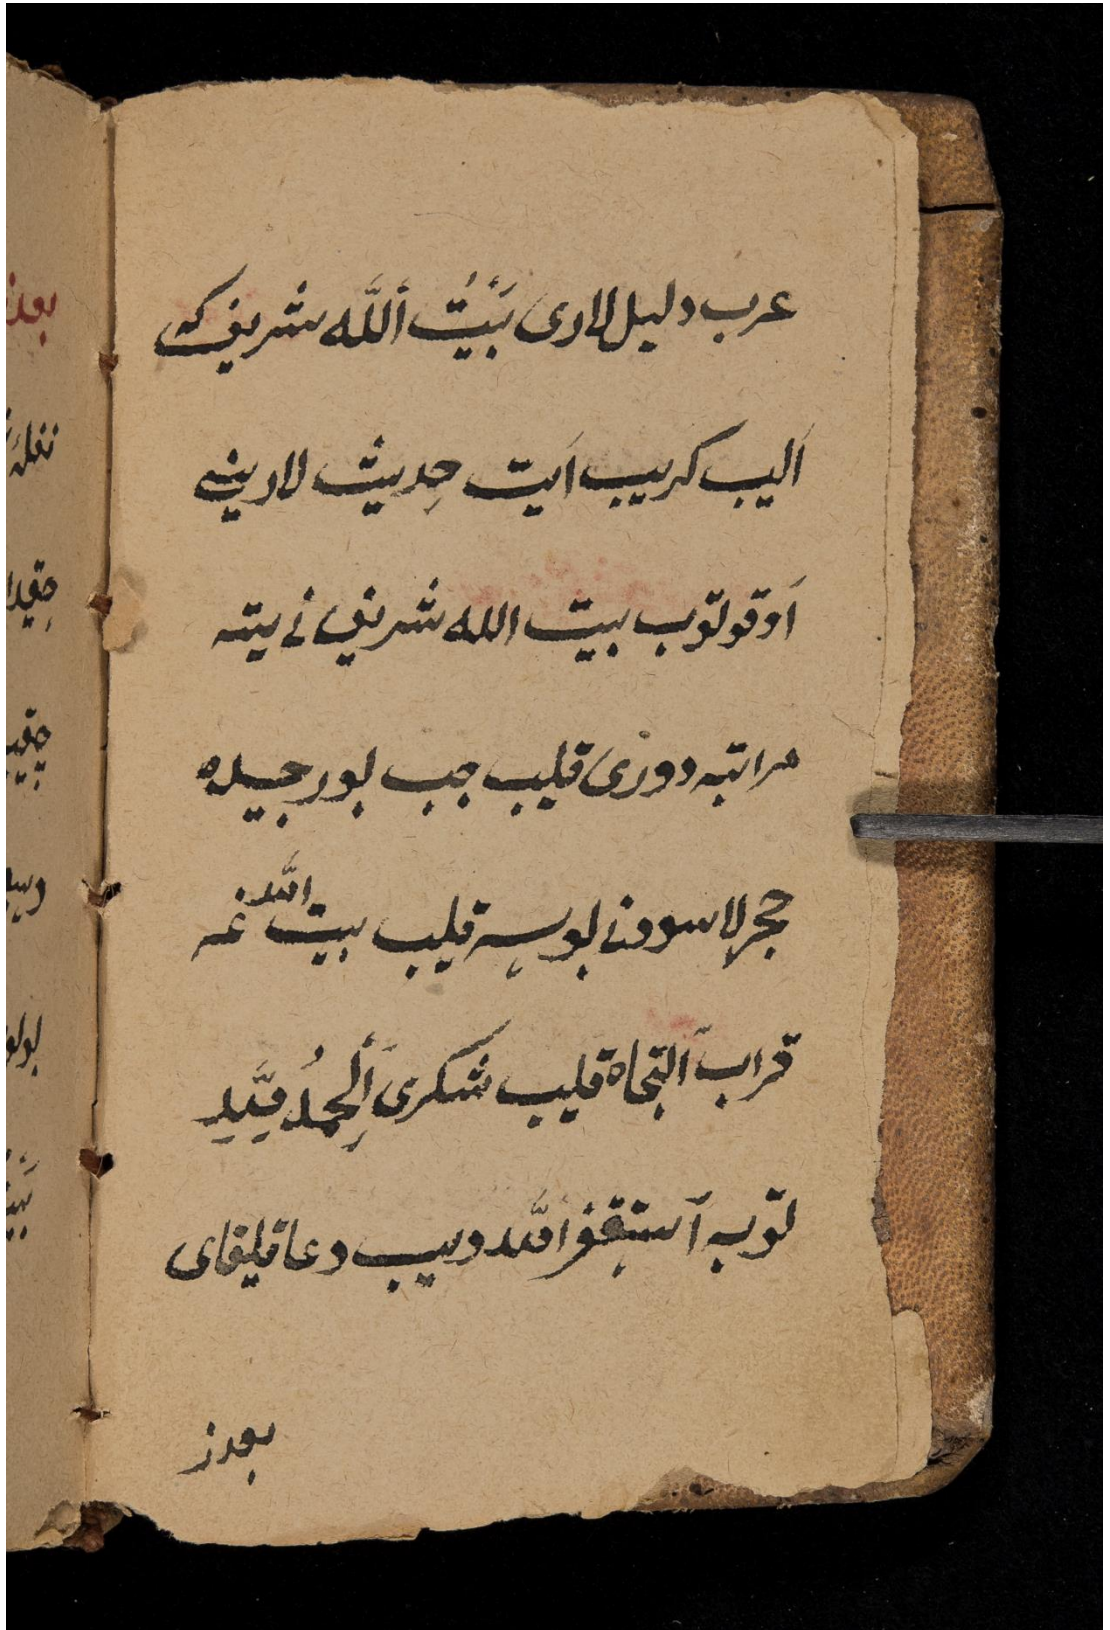 عرب دليل لاری بَيْتُ أللَّه شريف كه
اَليب كريب اَيت حِديث لارينى
اَوقوتوب بيت الله شريف نى يته
مراتبه دورى قليب جب بورجيده
حجر لاسودنى بوسِه قليب بيت اللَّه غه
قراب اَلتجاه قليب شكرى أَلِحمدُ
توبه اَستِغفر اللَّه ديب دعا قليفاى
بعدز
بعدز